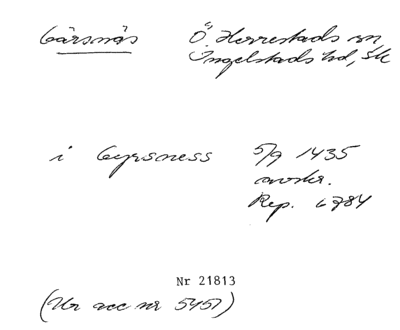 Gärsnäs Ö. Herrestads sn
Ingelstads hd, Sk
i Gyrsness 5/9 1435
avskr.
Rep. 6784
Nr 21813
(Ur acc nr 5457)